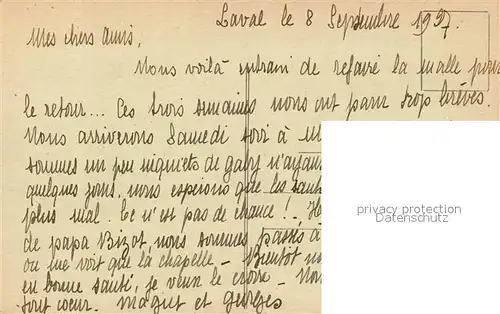 Laval le 8 Septembre 1937.
Mes chers amis,
Nous voilà entrain de refaire la malle pour
le retour... Ces trois semaines nous ont paru trop brèves.
Nous arriverons Samedi soir à
sommes un peu inquiets de gaby n'ayant
quelques jours. nous espérons que les
plus mal. Ce n'est pas de chance!
de papa Bizot, nous sommes passés à
ou une voit que la chapelle - Bientôt
en bonne santé, je veux le croire -
tout coeur. Magut et georges
privacy protection
Datenschutz